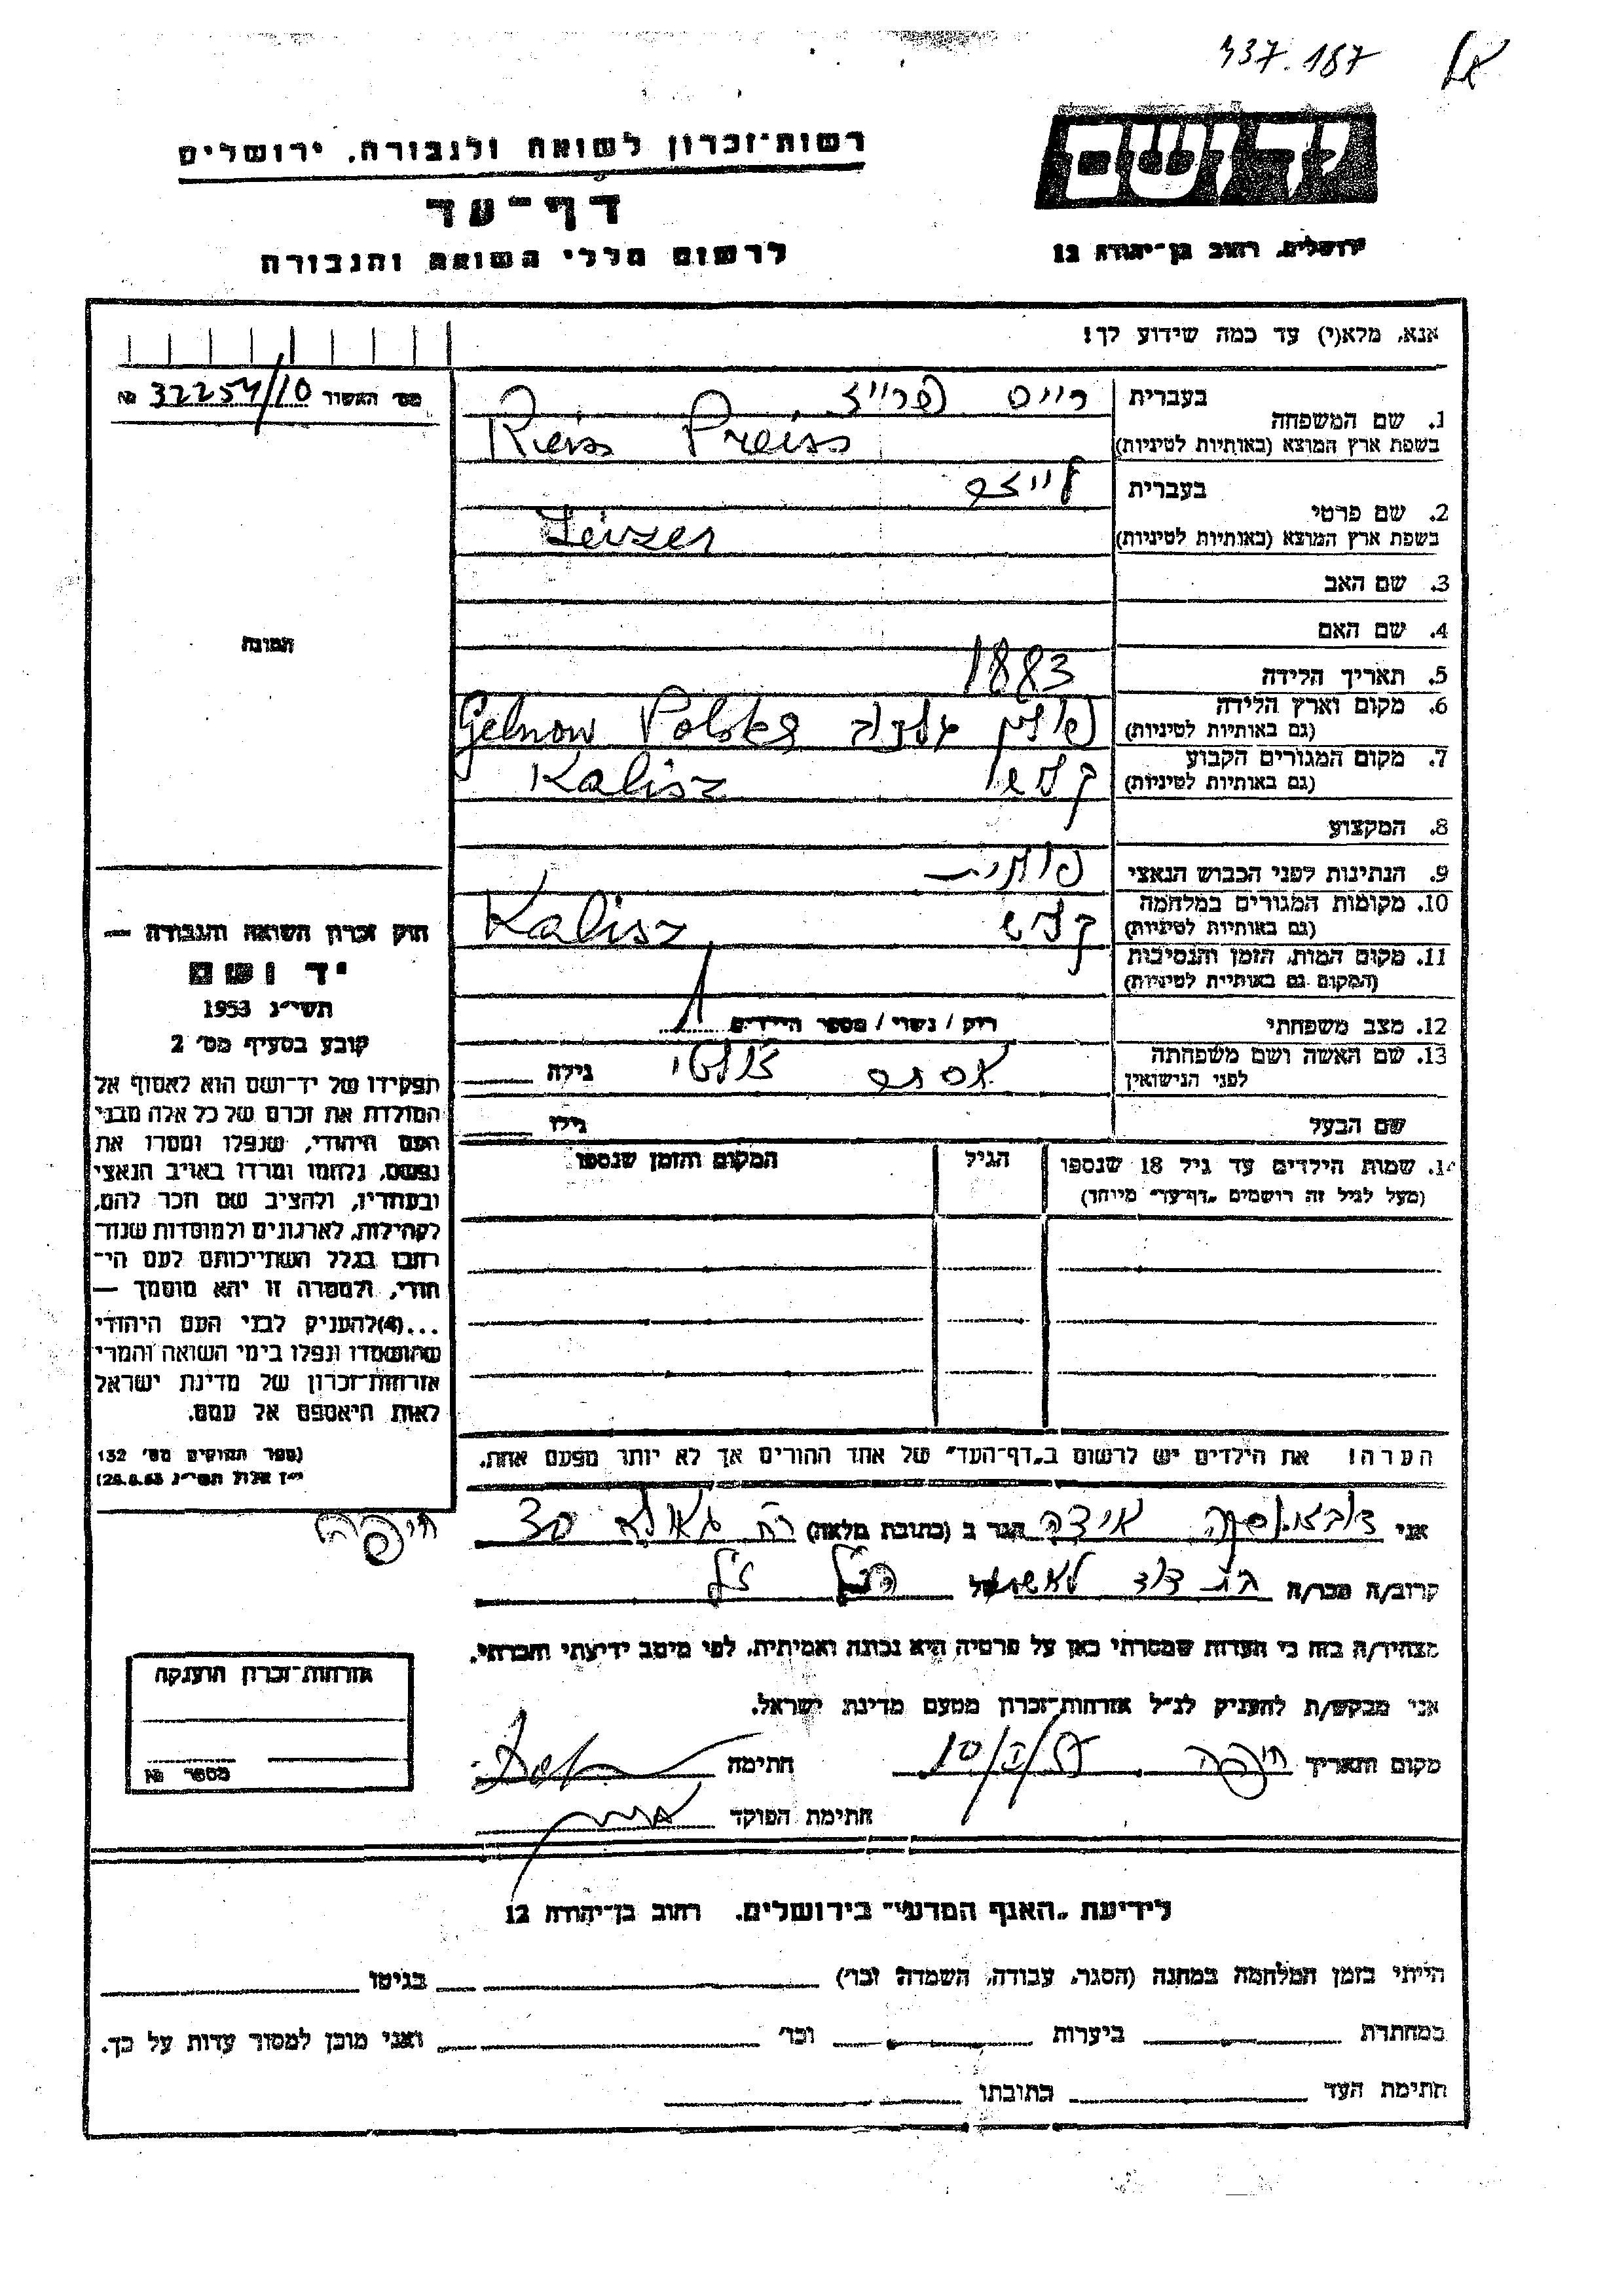 437.187
רשות־זכרון לשואה ולגבורה, ירושלים
יד ושם
דף־עד
ירושלים, רחוב בן־יהודה 12
לרשום חללי השואה והגבורה
אנא, מלא(י) עד כמה שידוע לך!
מס׳ האשור № 32254/10
1. שם המשפחה בעברית רייס פרייז
בשפת ארץ המוצא (באותיות לטיניות) Reiss Preiss
2. שם פרטי בעברית לייזר
בשפת ארץ המוצא (באותיות לטיניות) Leizer
3. שם האב
4. שם האם
התמונה
5. תאריך הלידה 1883
6. מקום וארץ הלידה (גם באותיות לטיניות) פולין Polska Gelnow
7. מקום המגורים הקבוע (גם באותיות לטיניות) קליש Kalisz
8. המקצוע
9. הנתינות לפני הכבוש הנאצי פולנית
10. מקומות המגורים במלחמה (גם באותיות לטיניות) קליש Kalisz
11. מקום המות, הזמן והנסיבות (המקום גם באותיות לטיניות)
12. מצב משפחתי רווק / נשוי / מספר הילדים
13. שם האשה ושם משפחתה לפני הנישואין אסתר גילה
שם הבעל גילו
14. שמות הילדים עד גיל 18 שנספו הגיל המקום והזמן שנספו
(מעל לגיל זה רושמים „דף־עד” מיוחד)
הערה! את הילדים יש לרשום ב„דף־העד” של אחד ההורים אך לא יותר מפעם אחת.
חוק זכרון השואה והגבורה —
יד ושם
תשי״ג 1953
קובע בסעיף מס׳ 2
תפקידו של יד־ושם הוא לאסוף אל
המולדת את זכרם של כל אלה מבני
העם היהודי, שנפלו ומסרו את
נפשם, נלחמו ומרדו באויב הנאצי
ובעוזריו, ולהציב שם וזכר להם,
לקהילות, לארגונים ולמוסדות שנח־
רבו בגלל השתייכותם לעם הי־
הודי, ולמטרה זו יהא מוסמך —
...(4) להעניק לבני העם היהודי
שהושמדו ונפלו בימי השואה והמרי
אזרחות־זכרון של מדינת ישראל
לאות היאספם אל עמם.
(ספר החוקים מס׳ 132
י״ז אלול תשי״ג 28.8.53)
אני אידה הגר ב (כתובת מלאה) רח גאולה 30
חיפה
קרוב/ה מכר/ה בת דוד של הנ״ל ז״ל
מצהיר/ה בזה כי העדות שמסרתי כאן על פרטיה היא נכונה ואמיתית, לפי מיטב ידיעתי והכרתי.
אני מבקש/ת להעניק לנ״ל אזרחות־זכרון מטעם מדינת ישראל.
מקום ותאריך חיפה חתימה
חתימת הפוקד
אזרחות־זכרון הוענקה
מספר №
לידיעת „האגף המדעי” בירושלים, רחוב בן־יהודה 12
הייתי בזמן המלחמה במחנה (הסגר, עבודה, השמדה וכו׳) בגיטו
במחתרת ביערות וכו׳ ואני מוכן למסור עדות על כך.
חתימת העד כתובתו